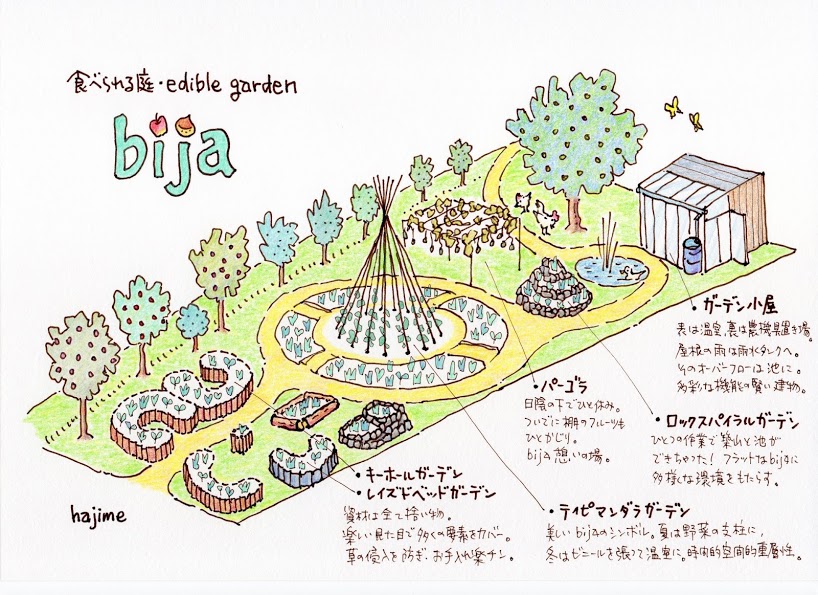 食べられる庭・edible garden
bija
・ガーデン小屋
表は温室、裏は農機具置き場。
屋根の雨は雨水タンクへ。
そのオーバーフローは池に。
多彩な機能の賢い建物。
・パーゴラ
日陰の下でひと休み。
ついでに棚のフルーツも
ひとかじり。
bija 憩いの場。
・ロックスパイラルガーデン
ひとつの作業で築山と池が
できちゃった！フラットなbijaに
多様な環境をもたらす。
・キーホールガーデン
・レイズドベッドガーデン
資材は全て拾い物。
楽しい見た目で多くの要素をカバー。
草の侵入を防ぎ、お手入れ楽チン。
・ティピマンダラガーデン
美しいbijaのシンボル。夏は野菜の支柱に、
冬はビニールを張って温室に。時間的空間的重層性。
hajime